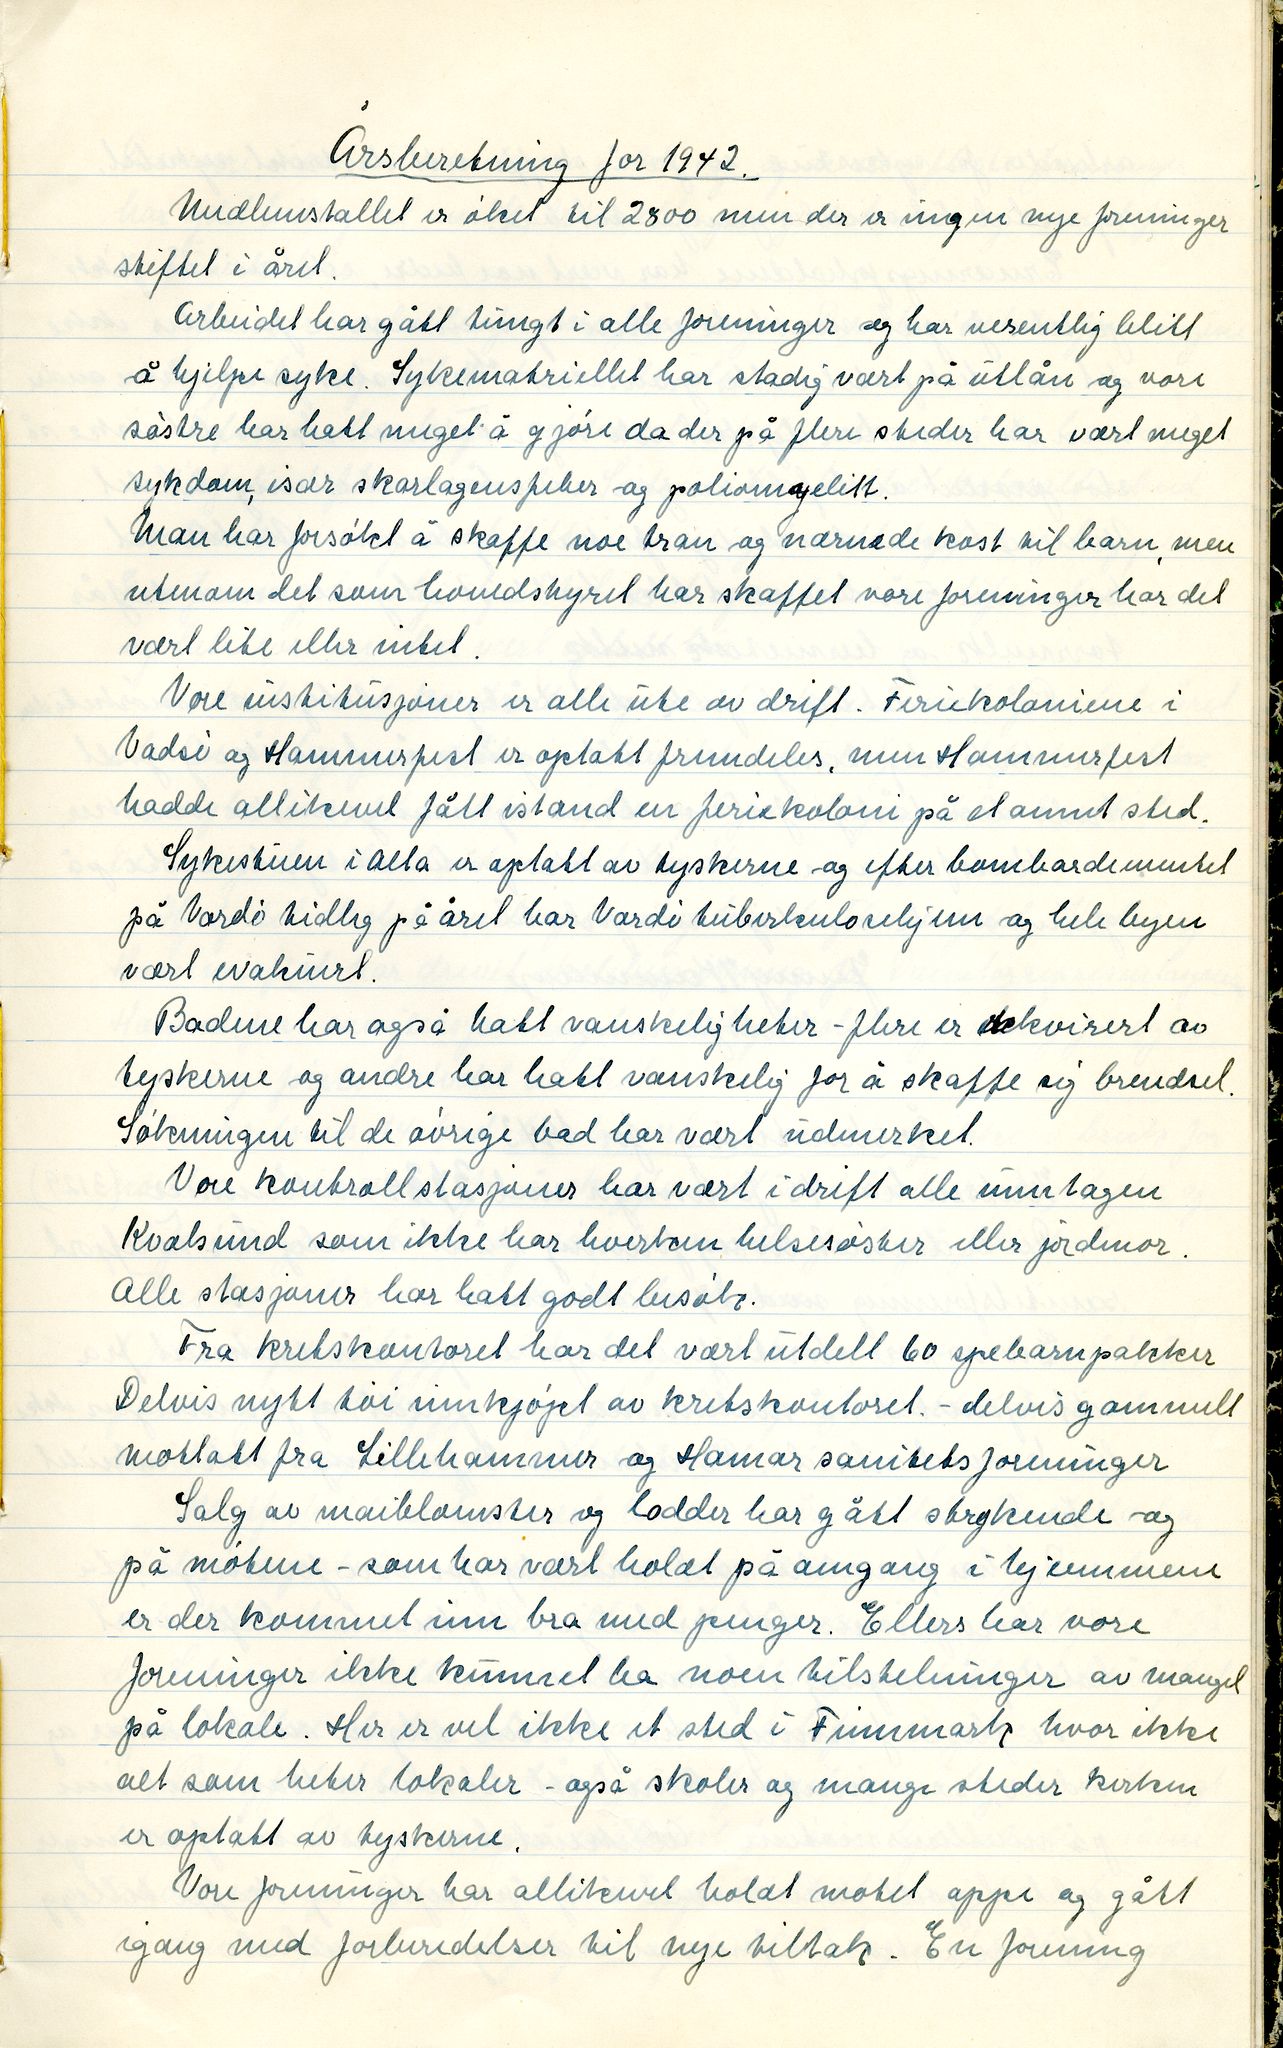 Årsberetning for 1942.
Medlemstallet er öket til 2800 men der er ingen nye foreninger
stiftet i året.
Arbeidet har gått tungt i alle foreninger og har vesentlig blitt
å hjelpe syke. Sykematriellet har stadig vært på utlån og vore
söstre har hatt meget å gjöre da der på flere steder har vært meget
sykdom, især skarlagensfeber og poliomyelitt.
Man har forsökt å skaffe noe tran og nærende kost til barn, men
utenom det som hovedstyret har skaffet vore foreninger har det
vært lite eller intet.
Vore institusjoner er alle ute av drift. Feriekoloniene i
Vadsö og Hammerfest er optatt fremdeles, men Hammerfest
hadde allikevel fått istand en feriekoloni på et annet sted.
Sykestuen i Alta er optatt av tyskerne og efter bombardementet
på Vardö tidlig på året har Vardö tuberkulosehjem og hele byen
vært evakuert.
Badene har også hatt vanskeligheter - flere er rekvirert av
tyskerne og andre har hatt vanskelig for å skaffe sig brendsel.
Sökningen til de övrige bad har vært udmerket.
Vore kontrollstasjoner har vært i drift alle unntagen
Kvalsund som ikke har hverken helsesöster eller jordmor.
Alle stasjoner har hatt godt besök.
Fra kretskontoret har det vært utdelt 60 spebarnpakker
Delvis nytt töi innkjöpt av kretskontoret. - delvis gammelt
mottatt fra Lillehammer og Hamar sanitetsforeninger
Salg av maiblomster og lodder har gått strykende og
på mötene - som har vært holdt på omgang i hjemmene
er der kommet inn bra med penger. Ellers har vore
foreninger ikke kunnet ha noen tilstelninger av mangel
på lokale. Her er vel ikke et sted i Finnmark hvor ikke
alt som heter lokaler - også skoler og mange steder kirken
er optatt av tyskerne.
Vore foreninger har allikevel holdt motet oppe og gått
igang med forberedelser til nye tiltak. En forening